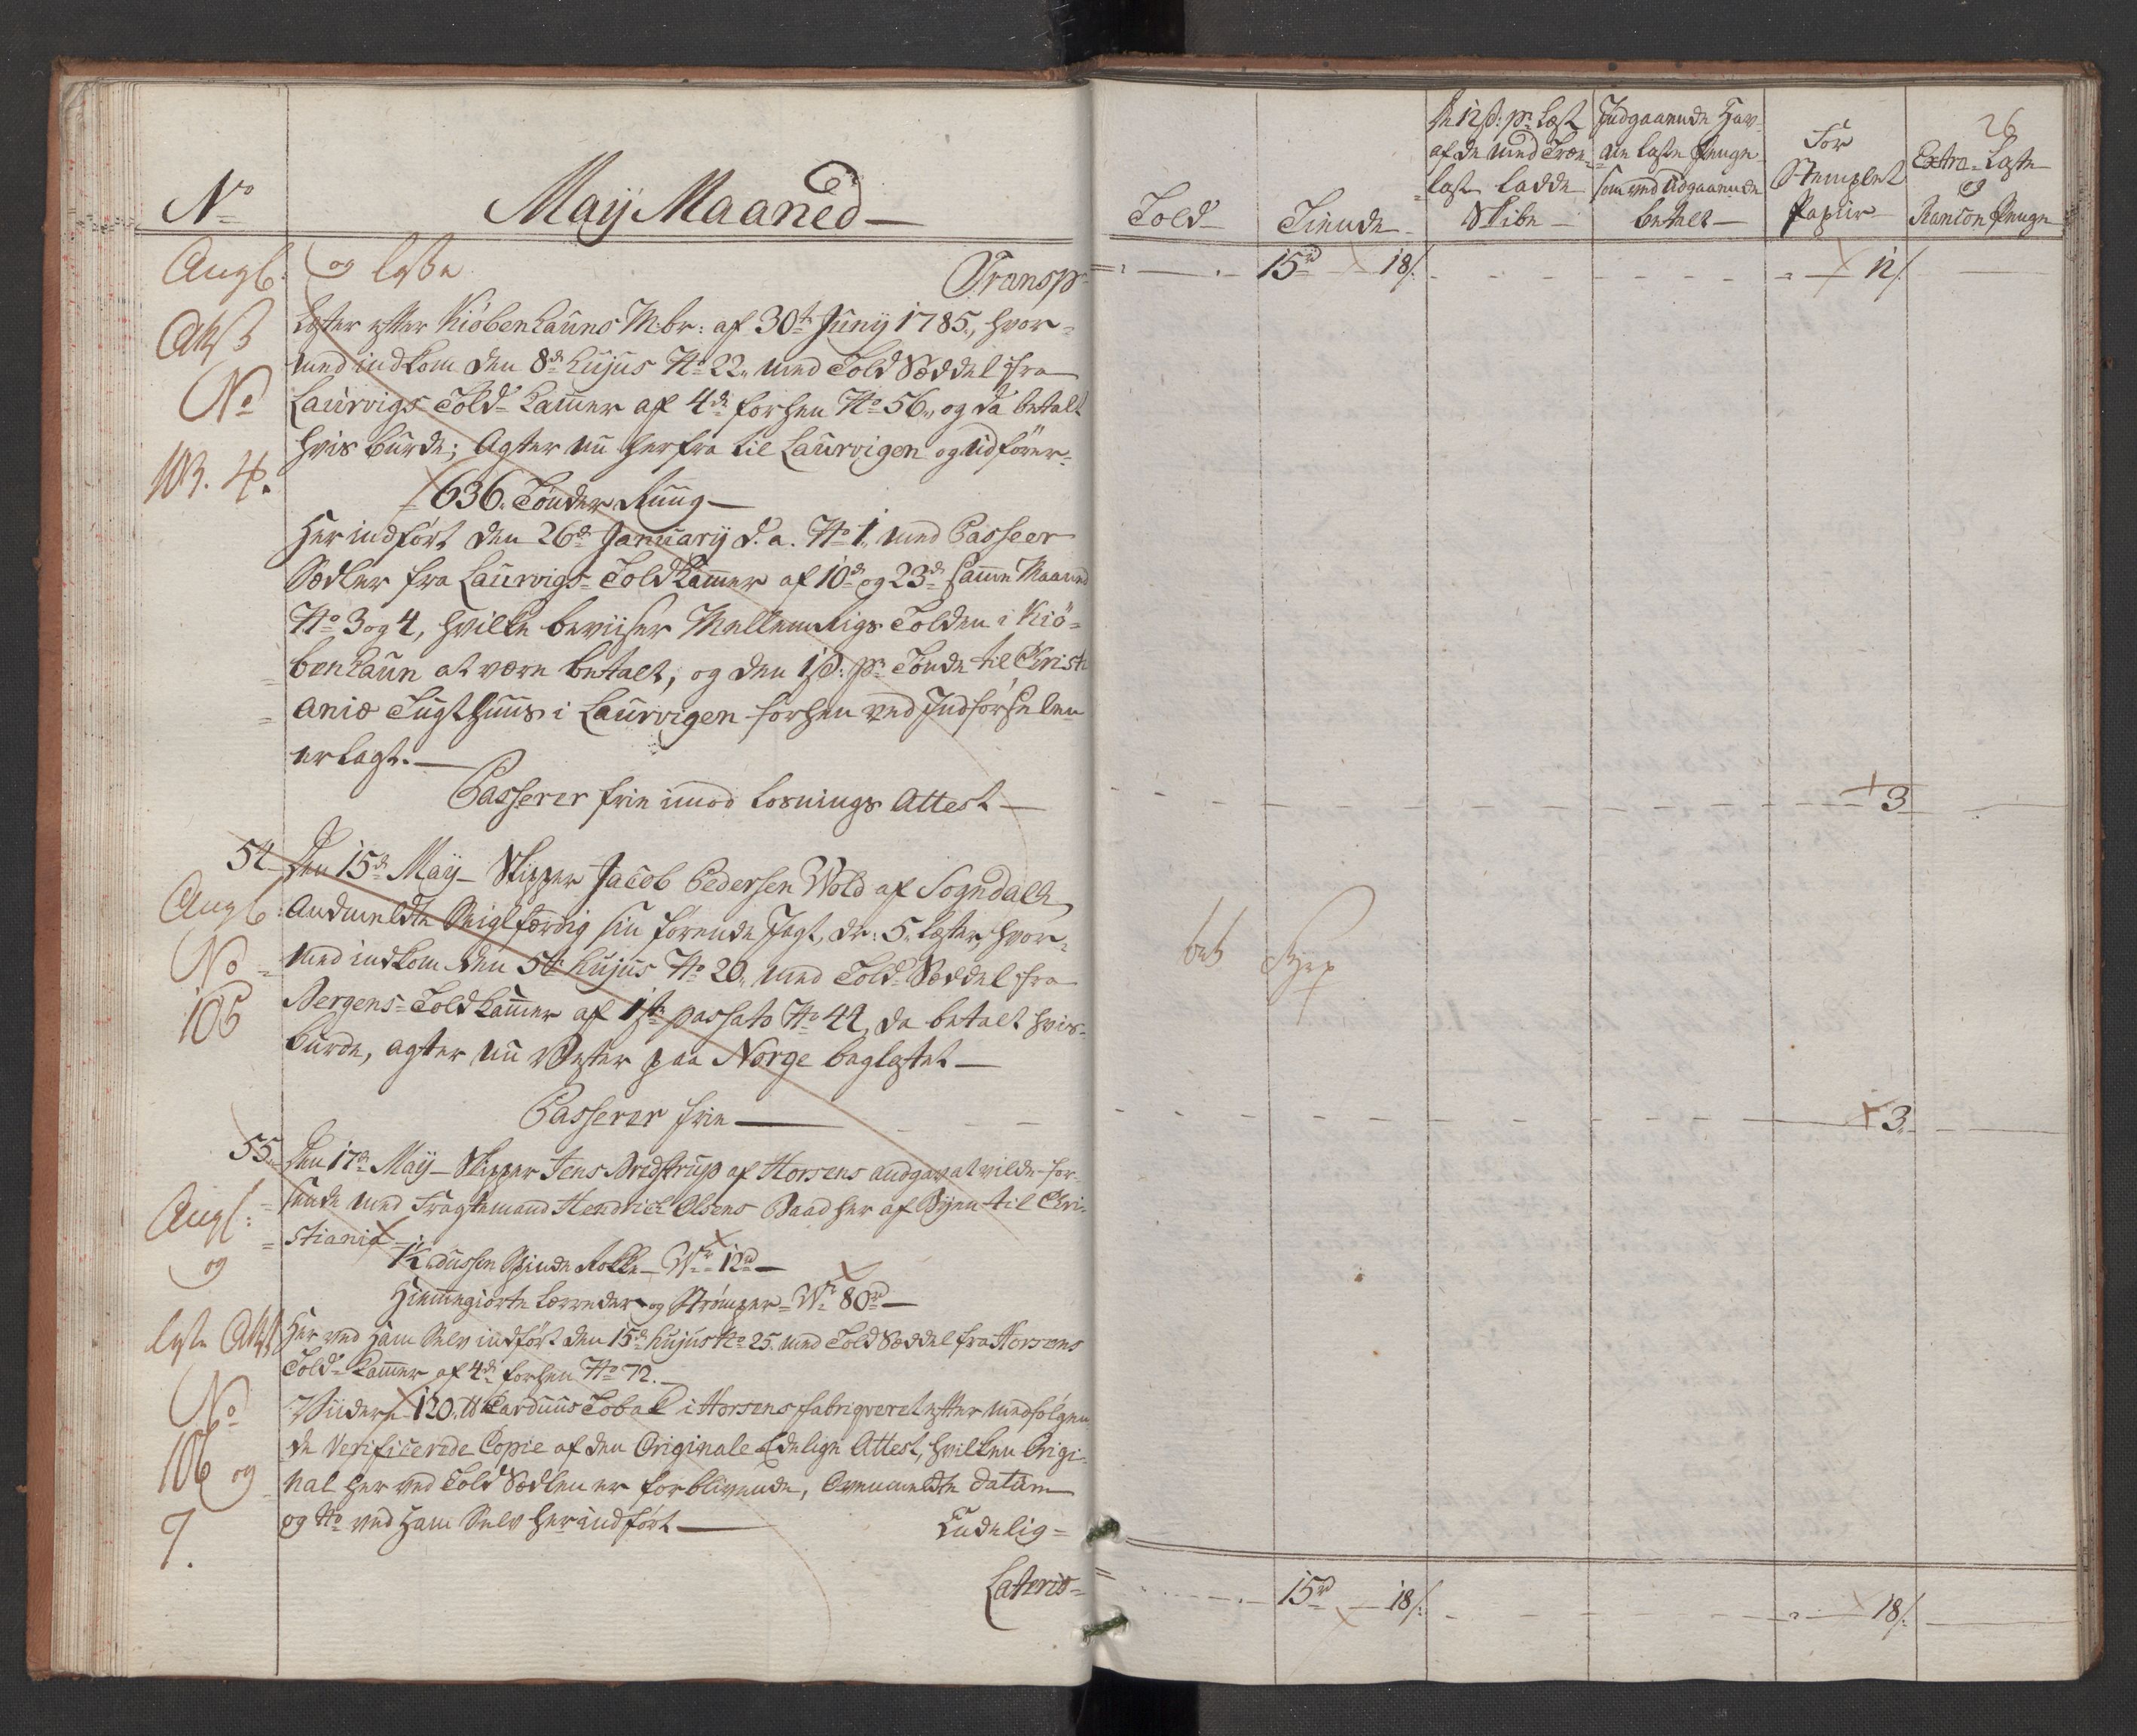 No
Maij Maaned
Angb: og lyste
Transp
Attest
No
103. 4.
Læster efter Kiöbenhauns M:br: af 30te Junij 1785, hvor-
med indkom den 8de hujus No 22, med Told Seddel fra
Laurvigs Told-Kammer af 4de forhen No 56, og da betalt
hvis burde; Agter nu herfra til Laurvigen og udförer
636 Tönder Ruug
Her indfört den 26de Januarij d. a. No 1, med Passeer
Sedler fra Laurvigs-Toldkammer af 10de og 23de samme Maaned
No 3 og 4, hvilke beviiser Mellemrigs Tolden i Kiö-
benhaun at være betalt, og den 1 s: pr Tönde til Christi-
aniæ Tugthuus i Laurvigen forhen ved Indförselen
erlagt.
Passerer frie imod Losnings Attest
54 Den 15de Maij Skipper Jacob Pedersen Wold af Sogndahl
Angb: Andmeldte Seiglfærdig sin förende Jagt, dr: 5 læster, hvor-
No
105
med indkom den 5te hujus No 20, med Told-Seddel fra
Bergens-Toldkammer af 1ste passato No 44, da betalt hvis
burde, agter nu Vester paa Norge baglastet
Passerer frie
55. Den 17de Maij Skipper Jens Bredstrup af Horsens andgav at vilde for-
Angb: sende med Fragtemand Hendrich Olsens Baad her af Byen til Chri-
stiania
og
1½ dussen Spinde Rokke W: 12rd
Hiemmegiorte Lærreder og Strömper W: 80rd
lyste Attest
Her ved ham Selv indfört den 15de hujus No 25, med Told Seddel fra Horsens
Told-Kammer af 4de forhen No 72.
No
106 og
7.
Videre 120 lb Carduus Tobak i Horsens fabriqveret efter medfölgen-
de Verificerede Copie af den Originale Edelige Attest, hvilken Origi-
nal her ved Told Sedlen er forblivende, Ovenmeldte datum
og No ved ham Selv her indfört
Endelig
Lateris
26
Told
Tiende
De 12 s: pr Læst
af de med Træ-
last ladde
Skibe
Indgaaende Hav-
ne Laste Penge
som ved Udgaaende
betalt
For
Stemplet
Papiir
Extra-Laste
og
Rancon Penge
15rd 18 s. 12 s.
3
3
15rd 18 s. 18 s.